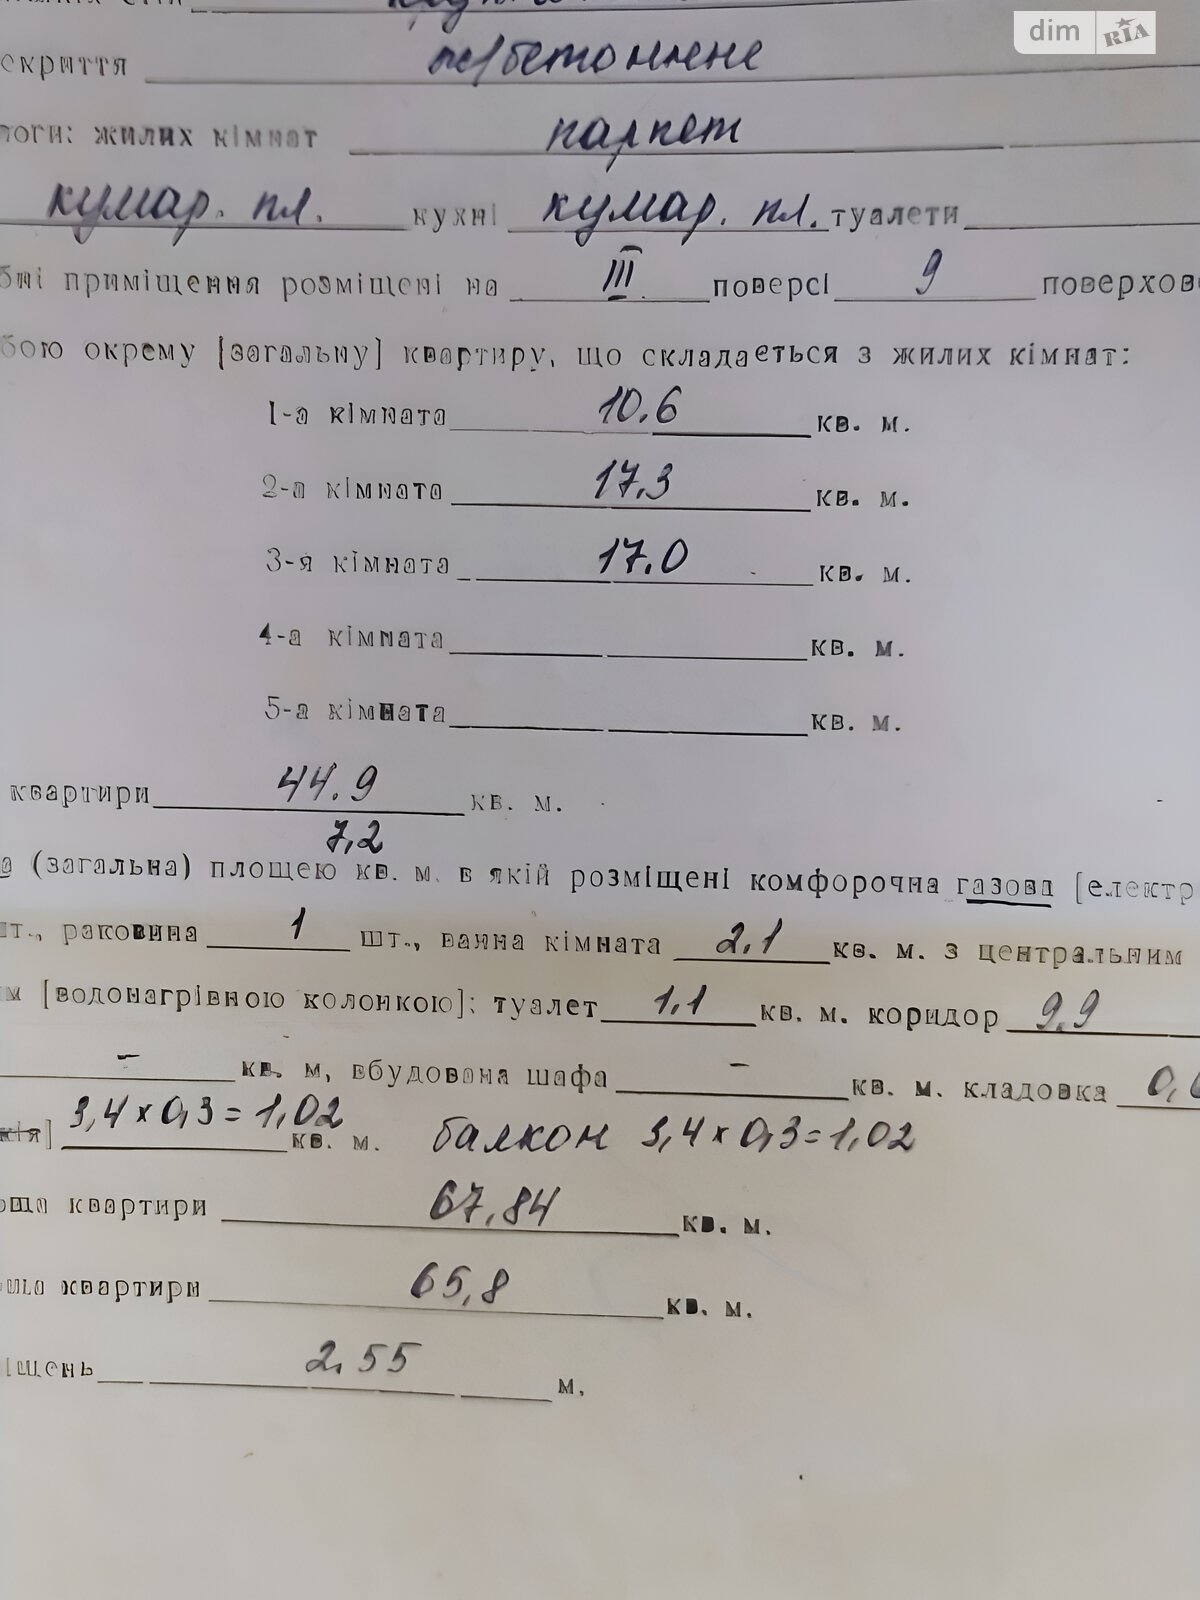 dim RIA
окриття ж/бетонне
логи: жилих кімнат паркет
кумар. пл. кухні кумар. пл. туалети
бні приміщення розміщені на III поверсі 9 поверхов
бою окрему [загальну] квартиру, що складається з жилих кімнат:
1-а кімната 10.6 кв. м.
2-а кімната 17.3 кв. м.
3-я кімната 17.0 кв. м.
4-а кімната кв. м.
5-а кімната кв. м.
квартири 44.9 кв. м.
7,2
а (загальна) площею кв. м. в якій розміщені комфорочна газова [електр
шт., раковина 1 шт., ванна кімната 2.1 кв. м. з центральним
м [водонагрівною колонкою]: туалет 1.1 кв. м. коридор 9.9
- кв. м, вбудована шафа - кв. м. кладовка
кія] 3,4 х 0,3 = 1,02 кв. м. балкон 3,4 х 0,3 = 1,02
оща квартири 67,84 кв. м.
квартири 65,8 кв. м.
іщень 2.55 м.